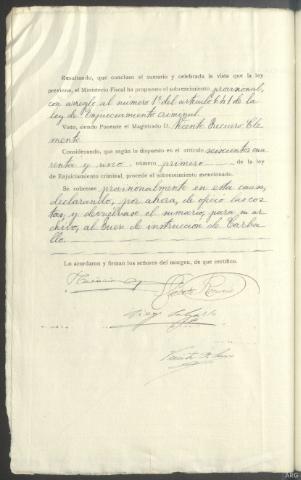 Resultando, que concluso el sumario y celebrada la vista que la ley
previene, el Ministerio Fiscal ha propuesto el sobreseimiento provisional,
con arreglo al número 1º del artículo 641 de la
ley de Enjuiciamiento criminal.
Visto, siendo Ponente el Magistrado D. Vicente
Considerando, que según lo dispuesto en el artículo seiscientos cua
renta y uno número primero de la ley
de Enjuiciamiento criminal, procede el sobreseimiento mencionado.
Se sobresee provisionalmente en esta causa,
declarando, por ahora, de oficio las cos
tas, y devuélvase el sumario, para su ar
chivo, al Juez de instrucción de Carba
llo.
Lo acordaron y firman los señores del margen, de que certifico.
ARG